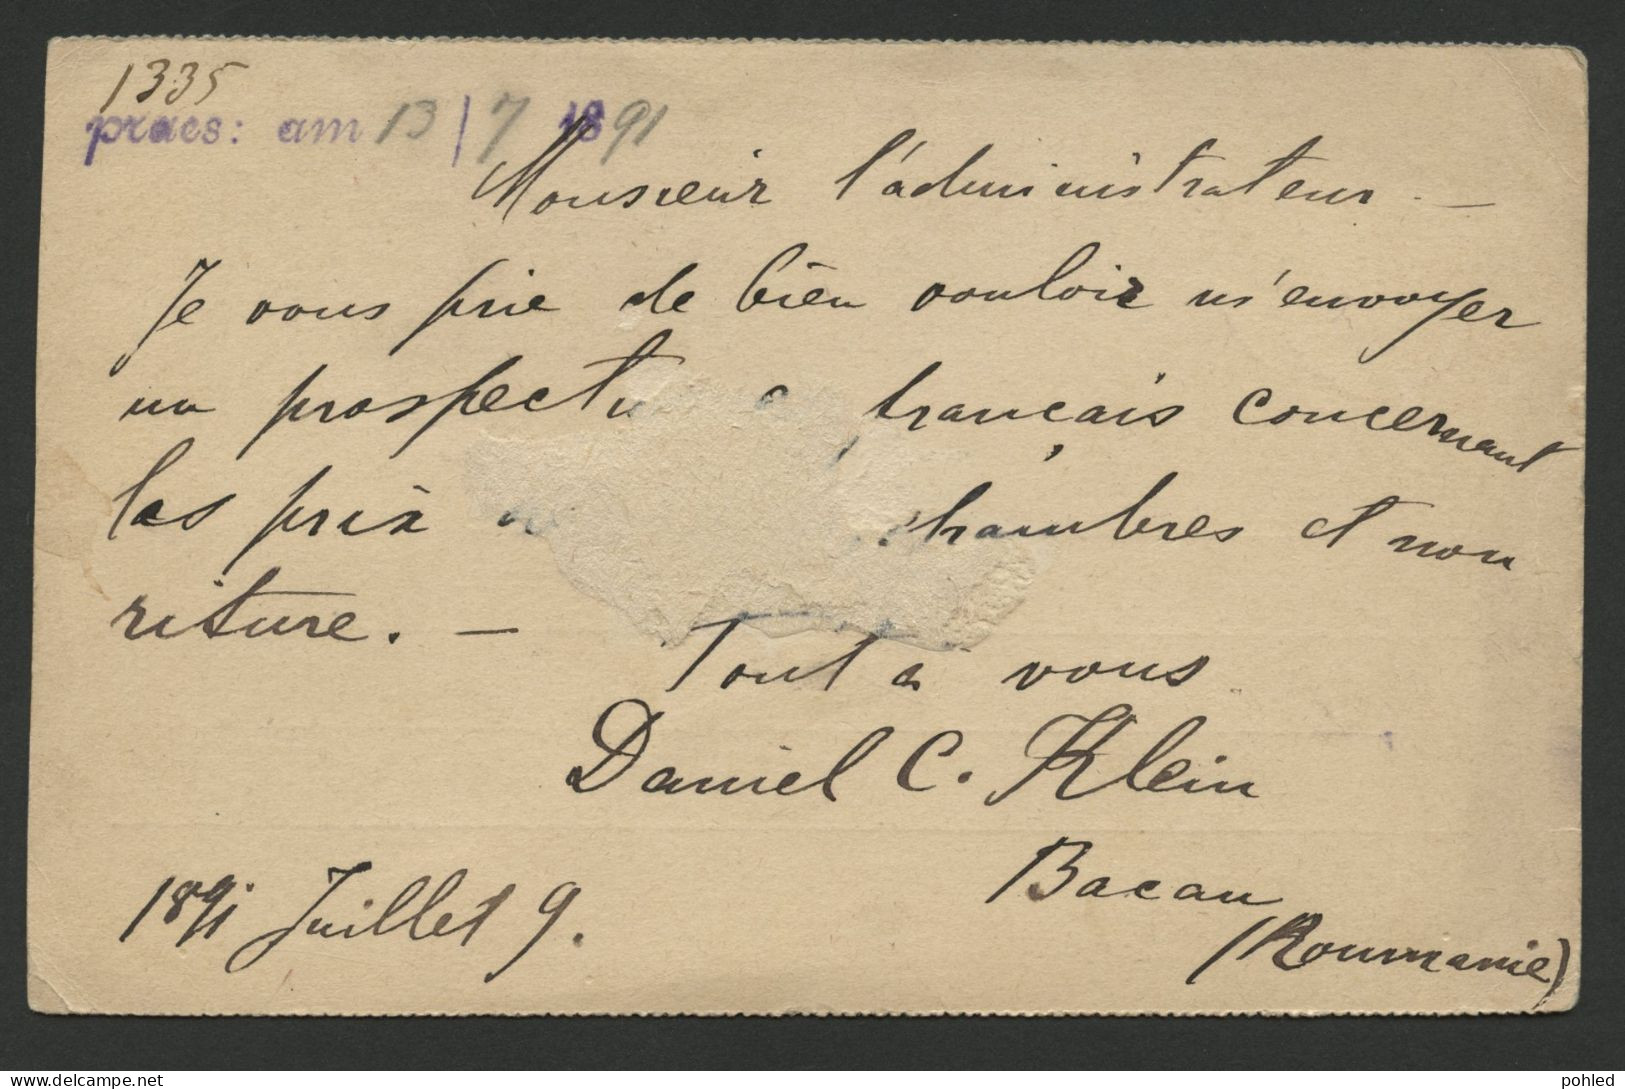 1335
praes: am 13/7 1891
Monsieur l'administrateur. —
Je vous prie de bien vouloir m'envoyer
un prospectu français concernant
les prix chambres et nou
riture. —
Tout à vous
Daniel C. Klein
Bacau
(Roumanie)
1891 Juillet 9.
pohled